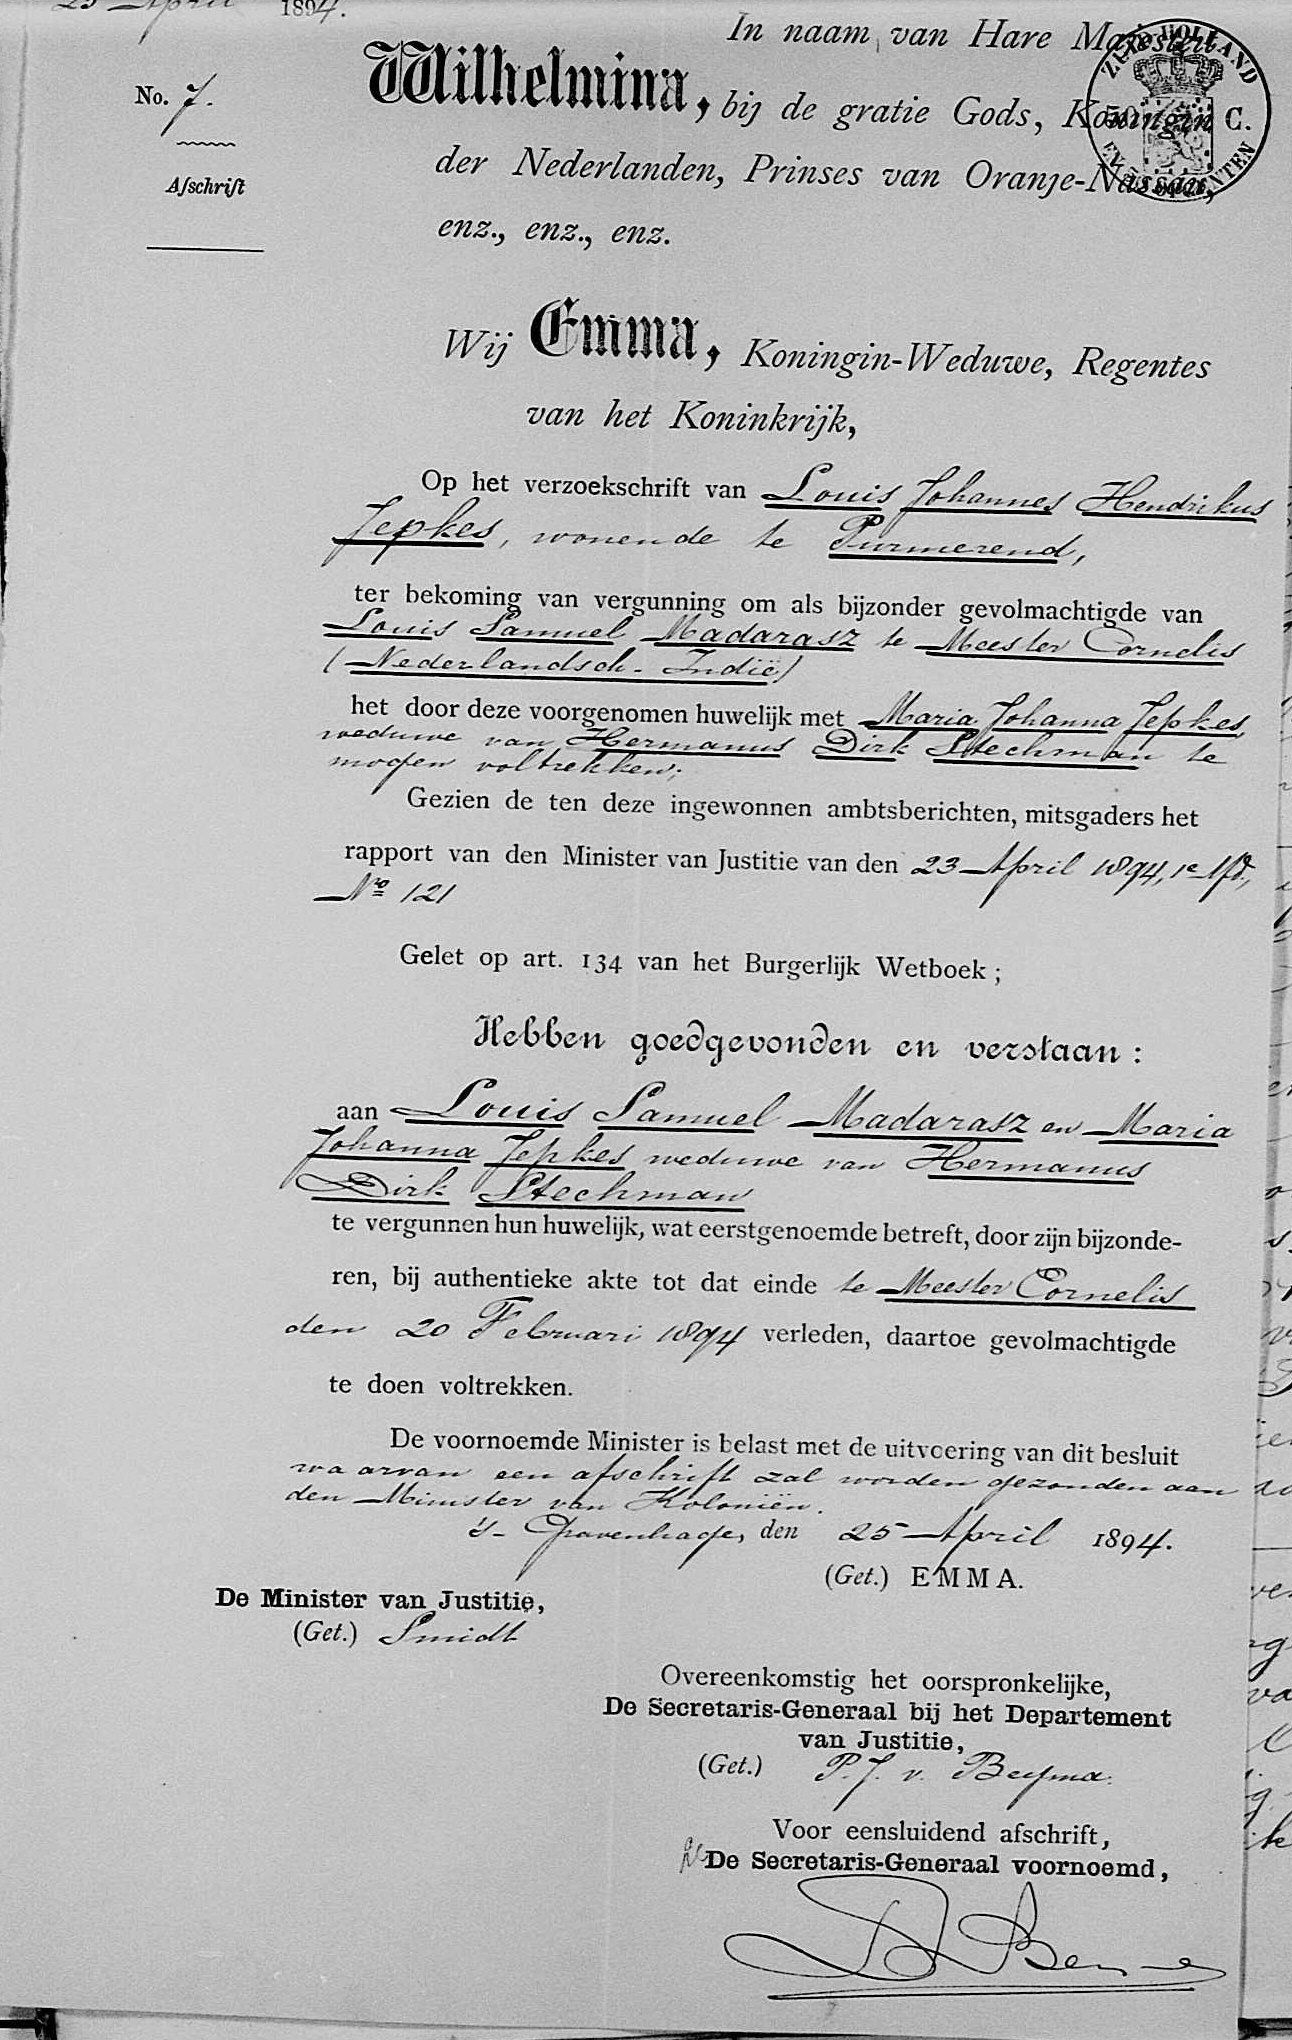 25 April 1894.
No. 7.
Afschrift
In naam van Hare Majesteit
Wilhelmina, bij de gratie Gods, Koningin
der Nederlanden, Prinses van Oranje-Nassau,
enz., enz., enz.
ZUID HOLLAND
50 C.
EN OPCENTEN
Wij Emma, Koningin-Weduwe, Regentes
van het Koninkrijk,
Op het verzoekschrift van Louis Johannes Hendrikus
Jepkes, wonende te Purmerend,
ter bekoming van vergunning om als bijzonder gevolmachtigde van
Louis Samuel Madarasz te Meester Cornelis
(Nederlandsch-Indië)
het door deze voorgenomen huwelijk met Maria Johanna Jepkes,
weduwe van Hermanus Dirk Stechman te
mogen voltrekken;
Gezien de ten deze ingewonnen ambtsberichten, mitsgaders het
rapport van den Minister van Justitie van den 23 April 1894, 1e Afd.,
No 121
Gelet op art. 134 van het Burgerlijk Wetboek;
Hebben goedgevonden en verstaan:
aan Louis Samuel Madarasz en Maria
Johanna Jepkes weduwe van Hermanus
Dirk Stechman
te vergunnen hun huwelijk, wat eerstgenoemde betreft, door zijn bijzonde-
ren, bij authentieke akte tot dat einde te Meester Cornelis
den 20 Februari 1894 verleden, daartoe gevolmachtigde
te doen voltrekken.
De voornoemde Minister is belast met de uitvoering van dit besluit
waarvan een afschrift zal worden gezonden aan
den Minister van Koloniën.
's-Gravenhage, den 25 April 1894.
(Get.) EMMA.
De Minister van Justitie,
(Get.) Smidt
Overeenkomstig het oorspronkelijke,
De Secretaris-Generaal bij het Departement
van Justitie,
(Get.) P. J. v. Beyma.
Voor eensluidend afschrift,
De Secretaris-Generaal voornoemd,